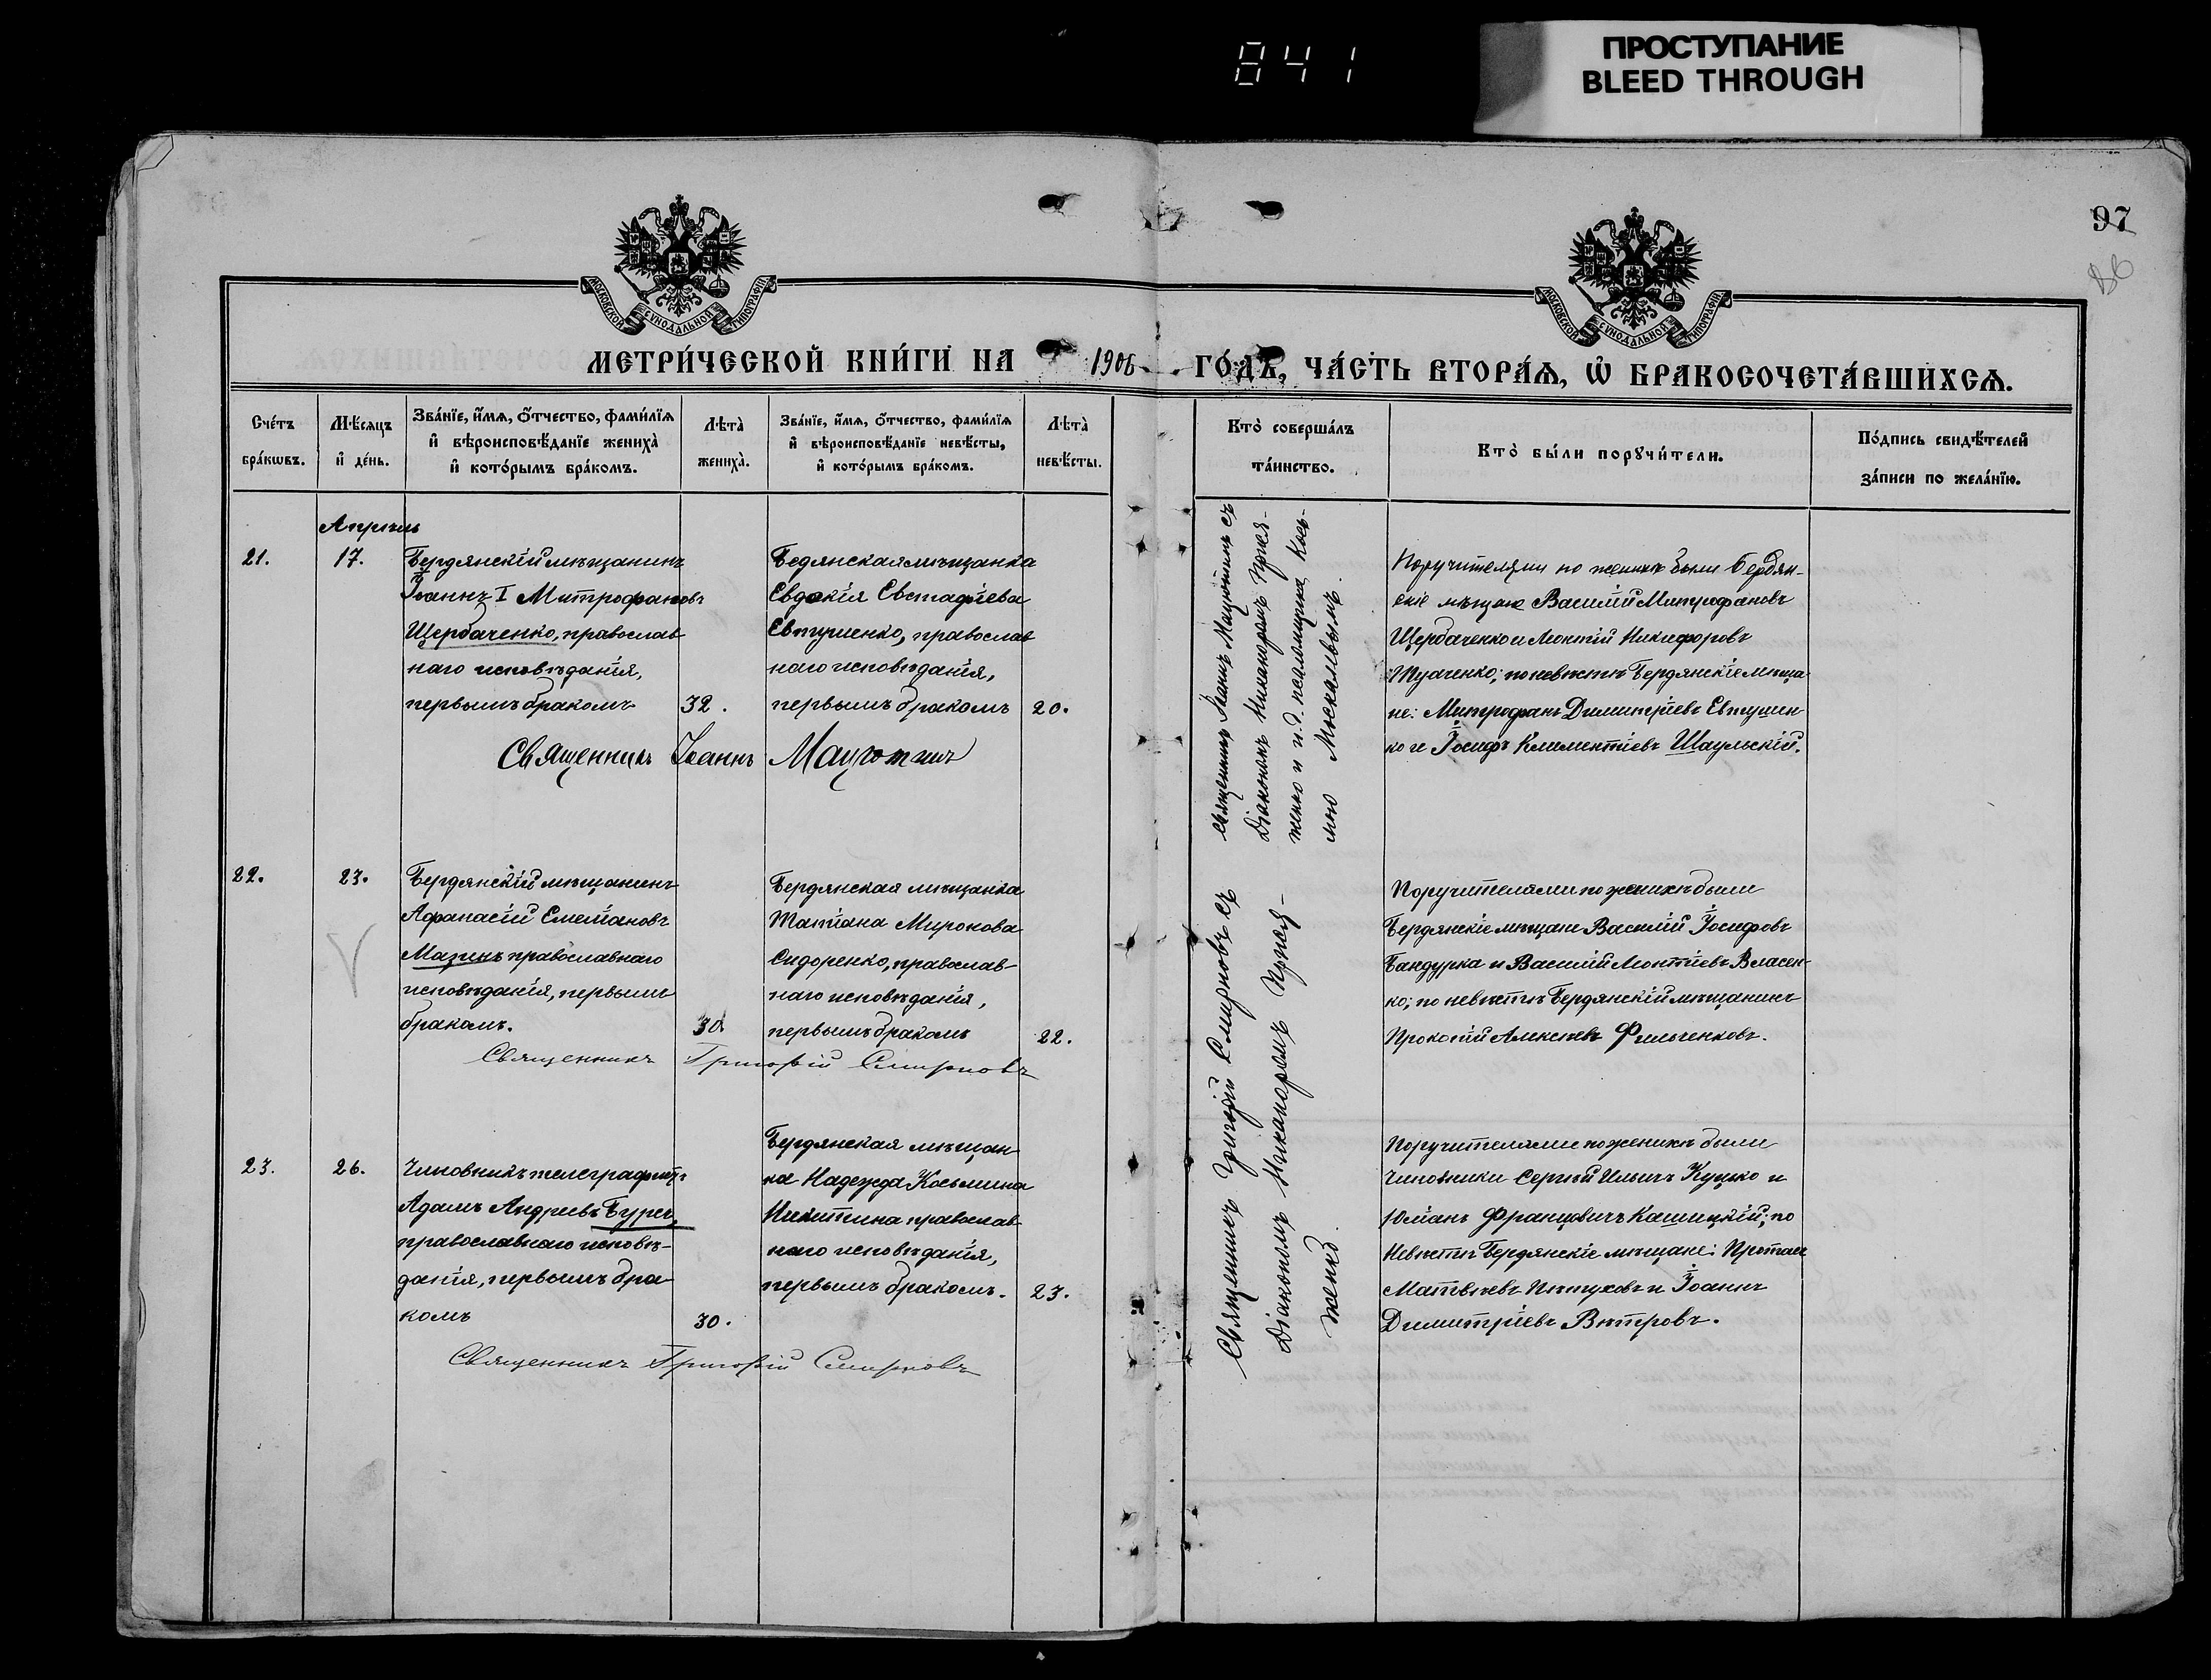 841
ПРОСТУПАНИЕ
BLEED THROUGH
97
МОСКОВСКОЙ СѴНОДАЛЬНОЙ ТИПОГРАФІИ
МОСКОВСКОЙ СѴНОДАЛЬНОЙ ТИПОГРАФІИ
МЕТРИ́ЧЕСКОЙ КНИ́ГИ НА 1906 ГО́ДЪ, ЧА́СТЬ ВТОРА́Ѧ, Ѡ҆ БРАКОСОЧЕТА́ВШИХСѦ.
Сче́тъ
бра́кѡвъ.
Мѣ́сяцъ
и҆ де́нь.
Зва́нїе, и҆́мѧ, ѻ҆́тчество, фами́лїѧ
и҆ вѣроисповѣ́данїе жениха̀
и҆ кото́рымъ бра́комъ.
Лѣта̀
жениха̀.
Зва́нїе, и҆́мѧ, ѻ҆́тчество, фами́лїѧ
и҆ вѣроисповѣ́данїе невѣ́сты,
и҆ кото́рымъ бра́комъ.
Лѣта̀
невѣ́сты.
Кто̀ соверша́лъ
та́инство.
Кто̀ бы́ли порꙋчи́тели.
По́дпись свидѣ́телей
за́писи по жела́нїю.
Апрѣль
21.
17.
Бердянскій мѣщанинъ
Іоаннъ I Митрофановъ
Щербаченко, православ
наго исповѣданія,
первымъ бракомъ
32.
Бедянская мѣщанка
Евдокія Евстафіева
Евтушенко, православ
наго исповѣданія,
первымъ бракомъ
20.
Священникъ Іоаннъ
Священникъ Іоаннъ съ
Діакономъ Никаноромъ Прися-
женко и и.д. псаломщика Кось-
мою
Поручителями по женихѣ были Бердян-
скіе мѣщане Василій Митрофановъ
Щербаченко и Леонтій Никифоровъ
Ткаченко; по невѣстѣ Бердянскіе мѣща
не: Митрофанъ Димитріевъ Евтушен
ко и Іосифъ Климентіевъ Шаульскій.
22.
23.
Бердянскій мѣщанинъ
Афанасій Емеліановъ
Мазинъ православнаго
исповѣданія, первымъ
бракомъ.
30.
Бердянская мѣщанка
Татіана Миронова
Сидоренко, православ-
наго исповѣданія,
первымъ бракомъ
22.
Священникъ Григорій Смирновъ
Священникъ Григорій Смирновъ съ
Діакономъ Никаноромъ Прися-
женко.
Поручителями по женихѣ были
Бердянскіе мѣщане Василій Іосифовъ
Бандурка и Василій Леонтіевъ Власен-
ко; по невѣстѣ Бердянскій мѣщанинъ
Прокопій Алексѣевъ Фильченковъ.
23.
26.
Чиновникъ телеграфистъ
Адамъ Андреевъ
православнаго исповѣ-
данія, первымъ бра
комъ
30.
Бердянская мѣщан
ка Надежда Косьмина
Никитина православ
наго исповѣданія,
первымъ бракомъ.
23.
Священникъ Григорій Смирновъ
Поручителями по женихѣ были
Чиновники Сергѣй Ильичъ Куцько и
Юліанъ Францовичъ Кашицкій; по
невѣстѣ Бердянскіе мѣщане:
Матвѣевъ Пѣтуховъ и Іоаннъ
Димитріевъ Вѣтровъ.